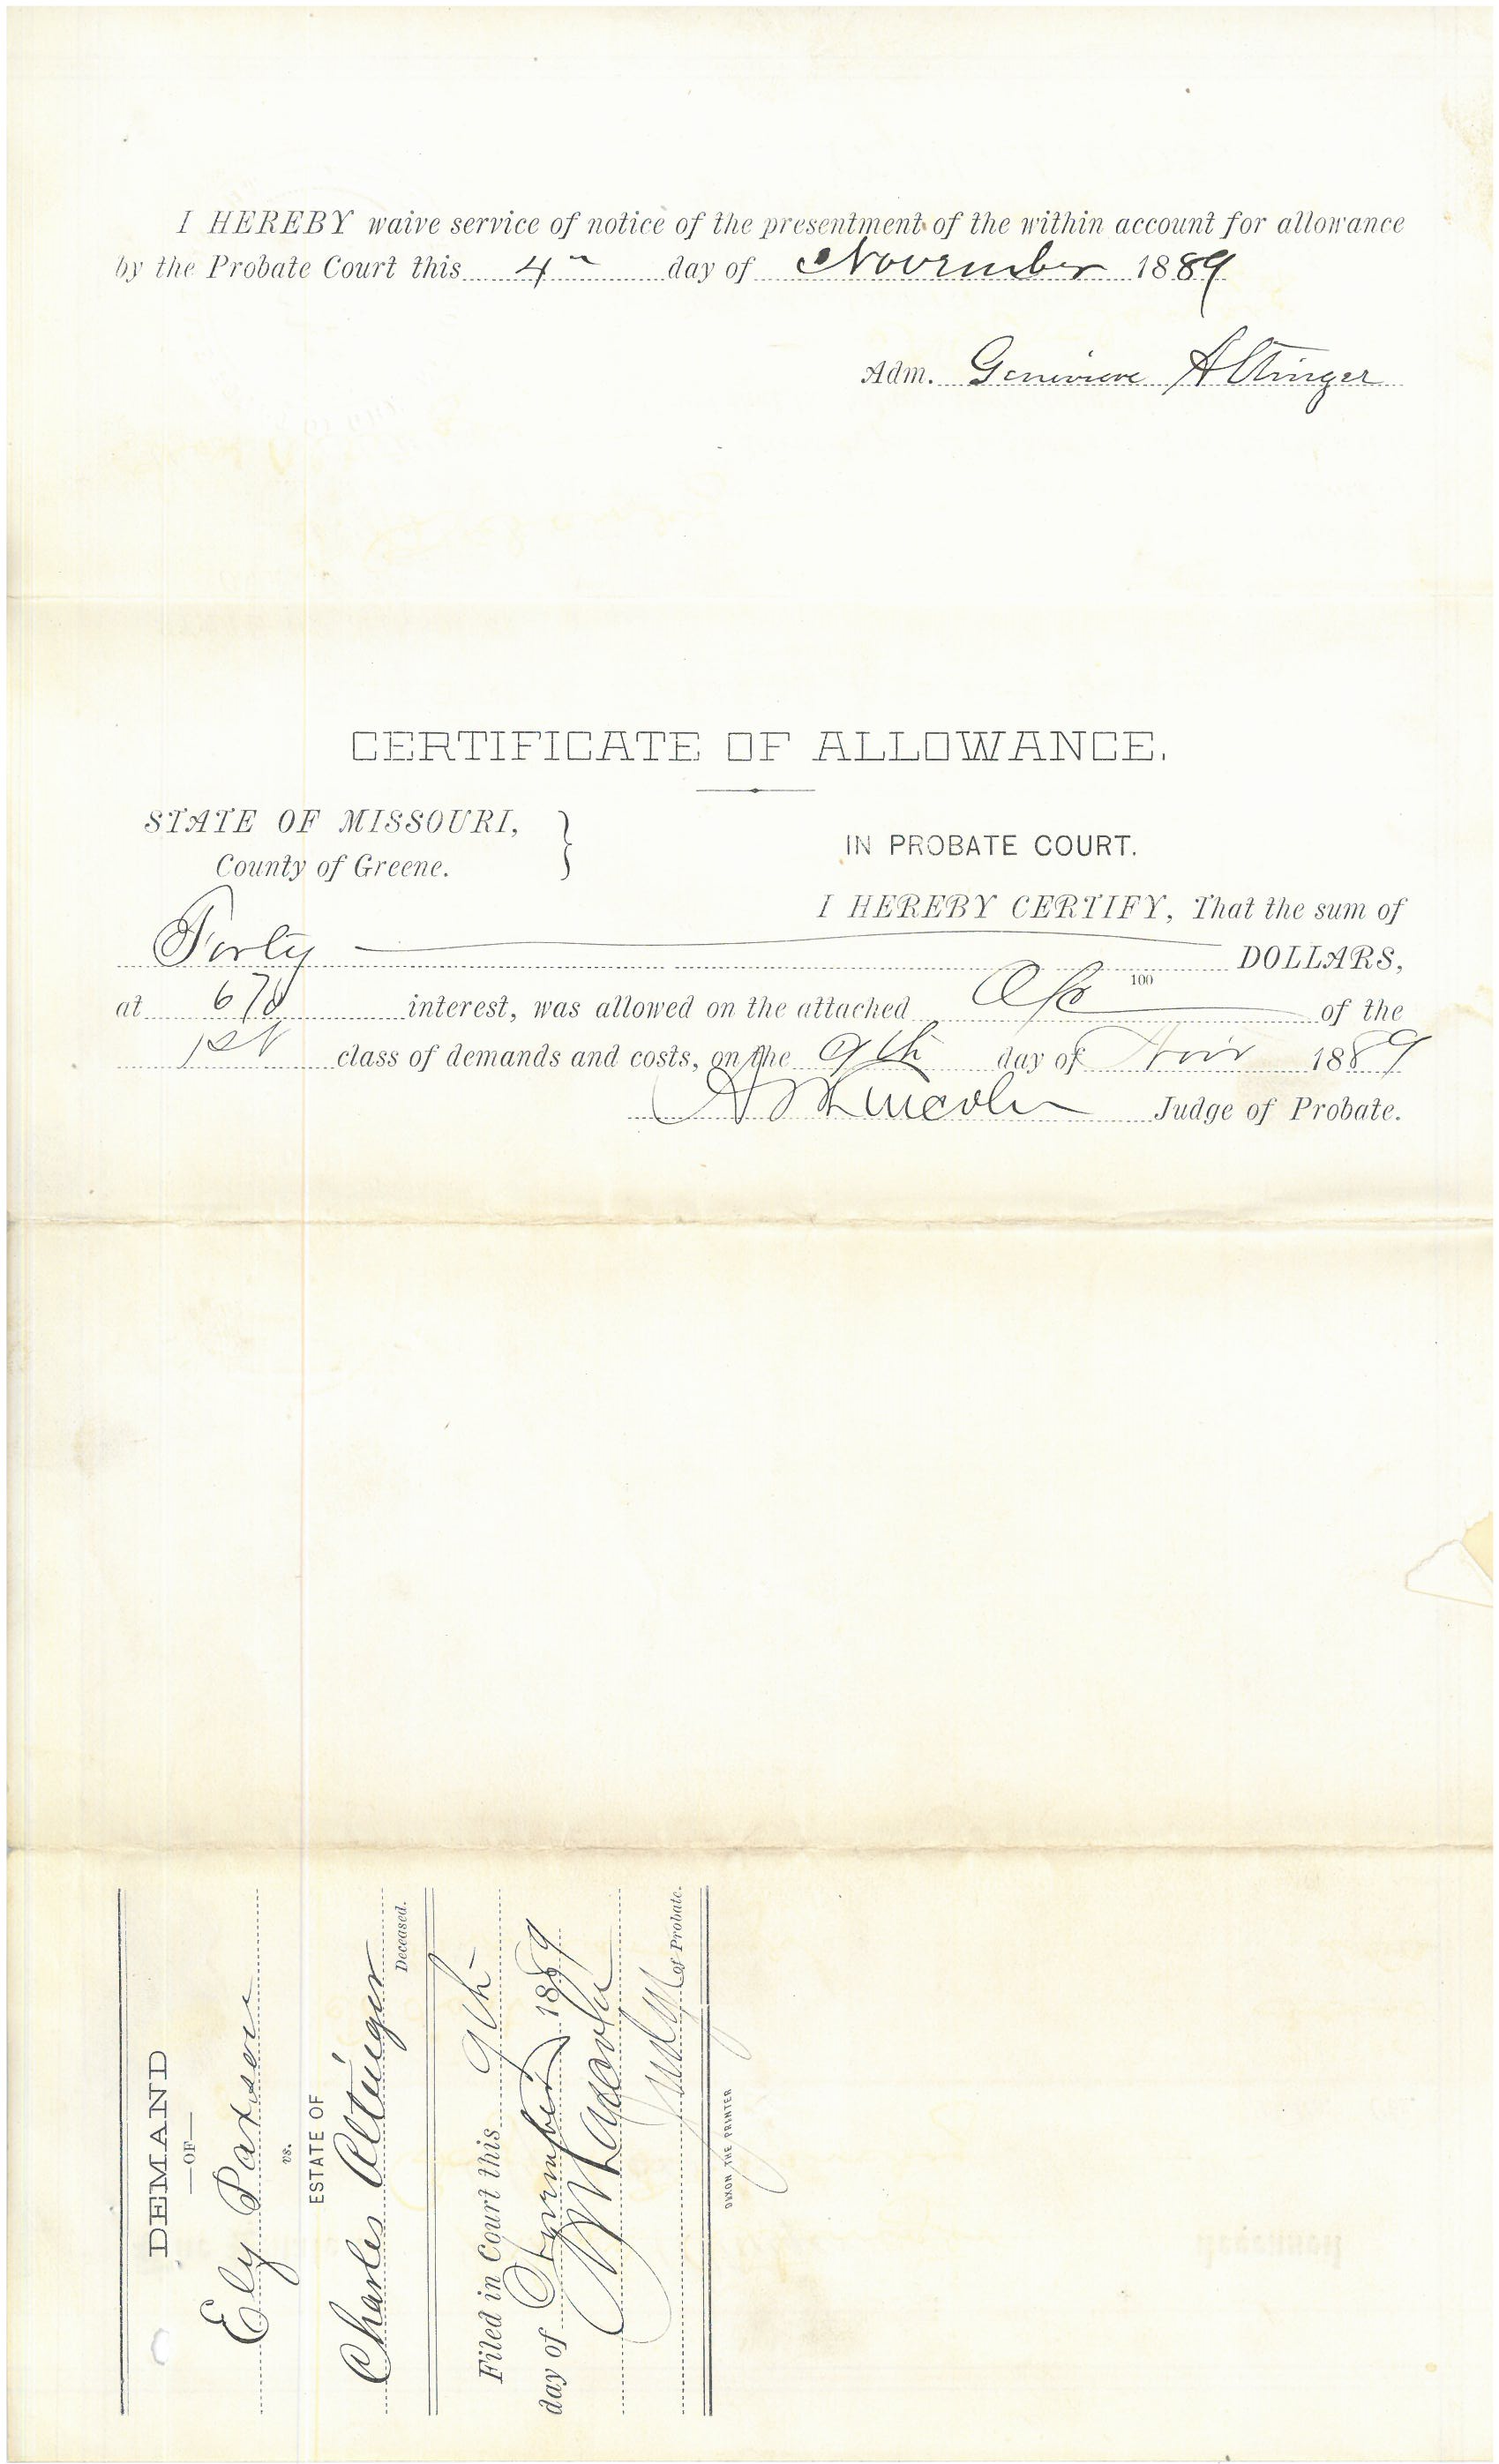 I HEREBY waive service of notice of the presentment of the within account for allowance
by the Probate Court this 4" day of November 1889
Adm. Genevieve Altinger
CERTIFICATE OF ALLOWANCE.
STATE OF MISSOURI,
County of Greene.
IN PROBATE COURT.
I HEREBY CERTIFY, That the sum of
Forty DOLLARS,
100
at 6% interest, was allowed on the attached a/c of the
1st class of demands and costs, on the 9th day of Nov 1889
Lincoln Judge of Probate.
DEMAND
—OF—
Ely Paxson
vs.
ESTATE OF
Charles Altinger
Deceased.
Filed in Court this 9th
day of November 1889
Lincoln
Judge of Probate.
DIXON THE PRINTER